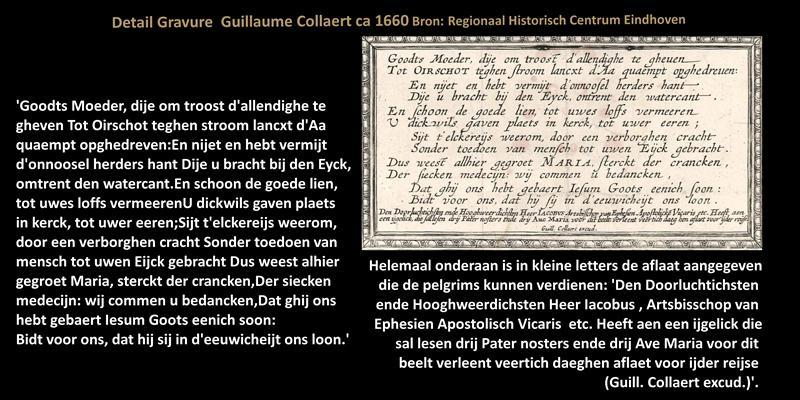 Detail Gravure Guillaume Collaert ca 1660 Bron: Regionaal Historisch Centrum Eindhoven
'Goodts Moeder, dije om troost d'allendighe te
gheven Tot Oirschot teghen stroom lancxt d'Aa
quaempt opghedreven:En nijet en hebt vermijt
d'onnoosel herders hant Dije u bracht bij den Eyck,
omtrent den watercant.En schoon de goede lien,
tot uwes loffs vermeerenU dickwils gaven plaets
in kerck, tot uwer eeren;Sijt t'elckereijs weerom,
door een verborghen cracht Sonder toedoen van
mensch tot uwen Eijck gebracht Dus weest alhier
gegroet Maria, sterckt der crancken,Der siecken
medecijn: wij commen u bedancken,Dat ghij ons
hebt gebaert Iesum Goots eenich soon:
Bidt voor ons, dat hij sij in d'eeuwicheijt ons loon.'
Goodts Moeder, dije om troost d'allendighe te gheuen
Tot OIRSCHOT teghen stroom lancxt d'Aa quaempt opghedreuen:
En nijet en hebt vermijt d'onnoosel herders hant
Dije u bracht bij den Eyck, omtrent den watercant.
En schoon de goede lien, tot uwes loffs vermeeren
U dickwils gaven plaets in kerck, tot uwer eeren;
Sijt t'elckereijs weerom, door een verborghen cracht
Sonder toedoen van mensch tot uwen Eijck gebracht.
Dus weest alhier gegroet MARIA, sterckt der crancken,
Der siecken medecijn: wij commen u bedancken,
Dat ghij ons hebt gebaert Iesum Goots eenich soon:
Bidt voor ons, dat hij sij in d'eeuwicheijt ons loon.
Den Doorluchtichsten ende Hooghweerdichsten Heer IACOBUS Artsbisschop van Ephesien Apostolijck Vicaris etc. Heeft, aen
een ijgelick, die sal lesen drij Pater nosters ende drij Ave Maria voor dit beelt verleent veertich daeghen aflaet voor ijder reijse
Guill. Collaert excud.
Helemaal onderaan is in kleine letters de aflaat aangegeven
die de pelgrims kunnen verdienen: 'Den Doorluchtichsten
ende Hooghweerdichsten Heer Iacobus , Artsbisschop van
Ephesien Apostolisch Vicaris etc. Heeft aen een ijgelick die
sal lesen drij Pater nosters ende drij Ave Maria voor dit
beelt verleent veertich daeghen aflaet voor ijder reijse
(Guill. Collaert excud.)'.